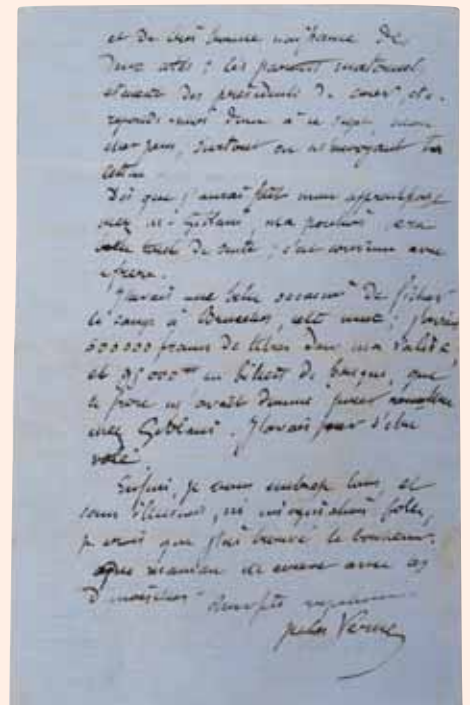 et de très bonne naissance des
deux côtés ; les parents maternels
étaient des présidents de cour, etc.
réponds-moi donc à ce sujet, mon
cher père, surtout en m'envoyant ta
lettre
Dès que j'aurai fait mon apprentissage
chez Mr Giblain, ma position sera
faite tout de suite ; c'est convenu avec
le frère.
J'avais une belle occasion de ficher
le camp à Bruxelles, cette nuit ; j'avais
600 000 francs de titres dans ma valise,
et 95 000 en billets de banque, que
le frère m'avait donné pour remettre
chez Giblain. J'avais peur d'être
volé.
Enfin, je vous embrasse tous, et
sans illusions, ni imagination folle,
je crois que j'ai trouvé le bonheur.
que maman ici encore avec
Jules Verne